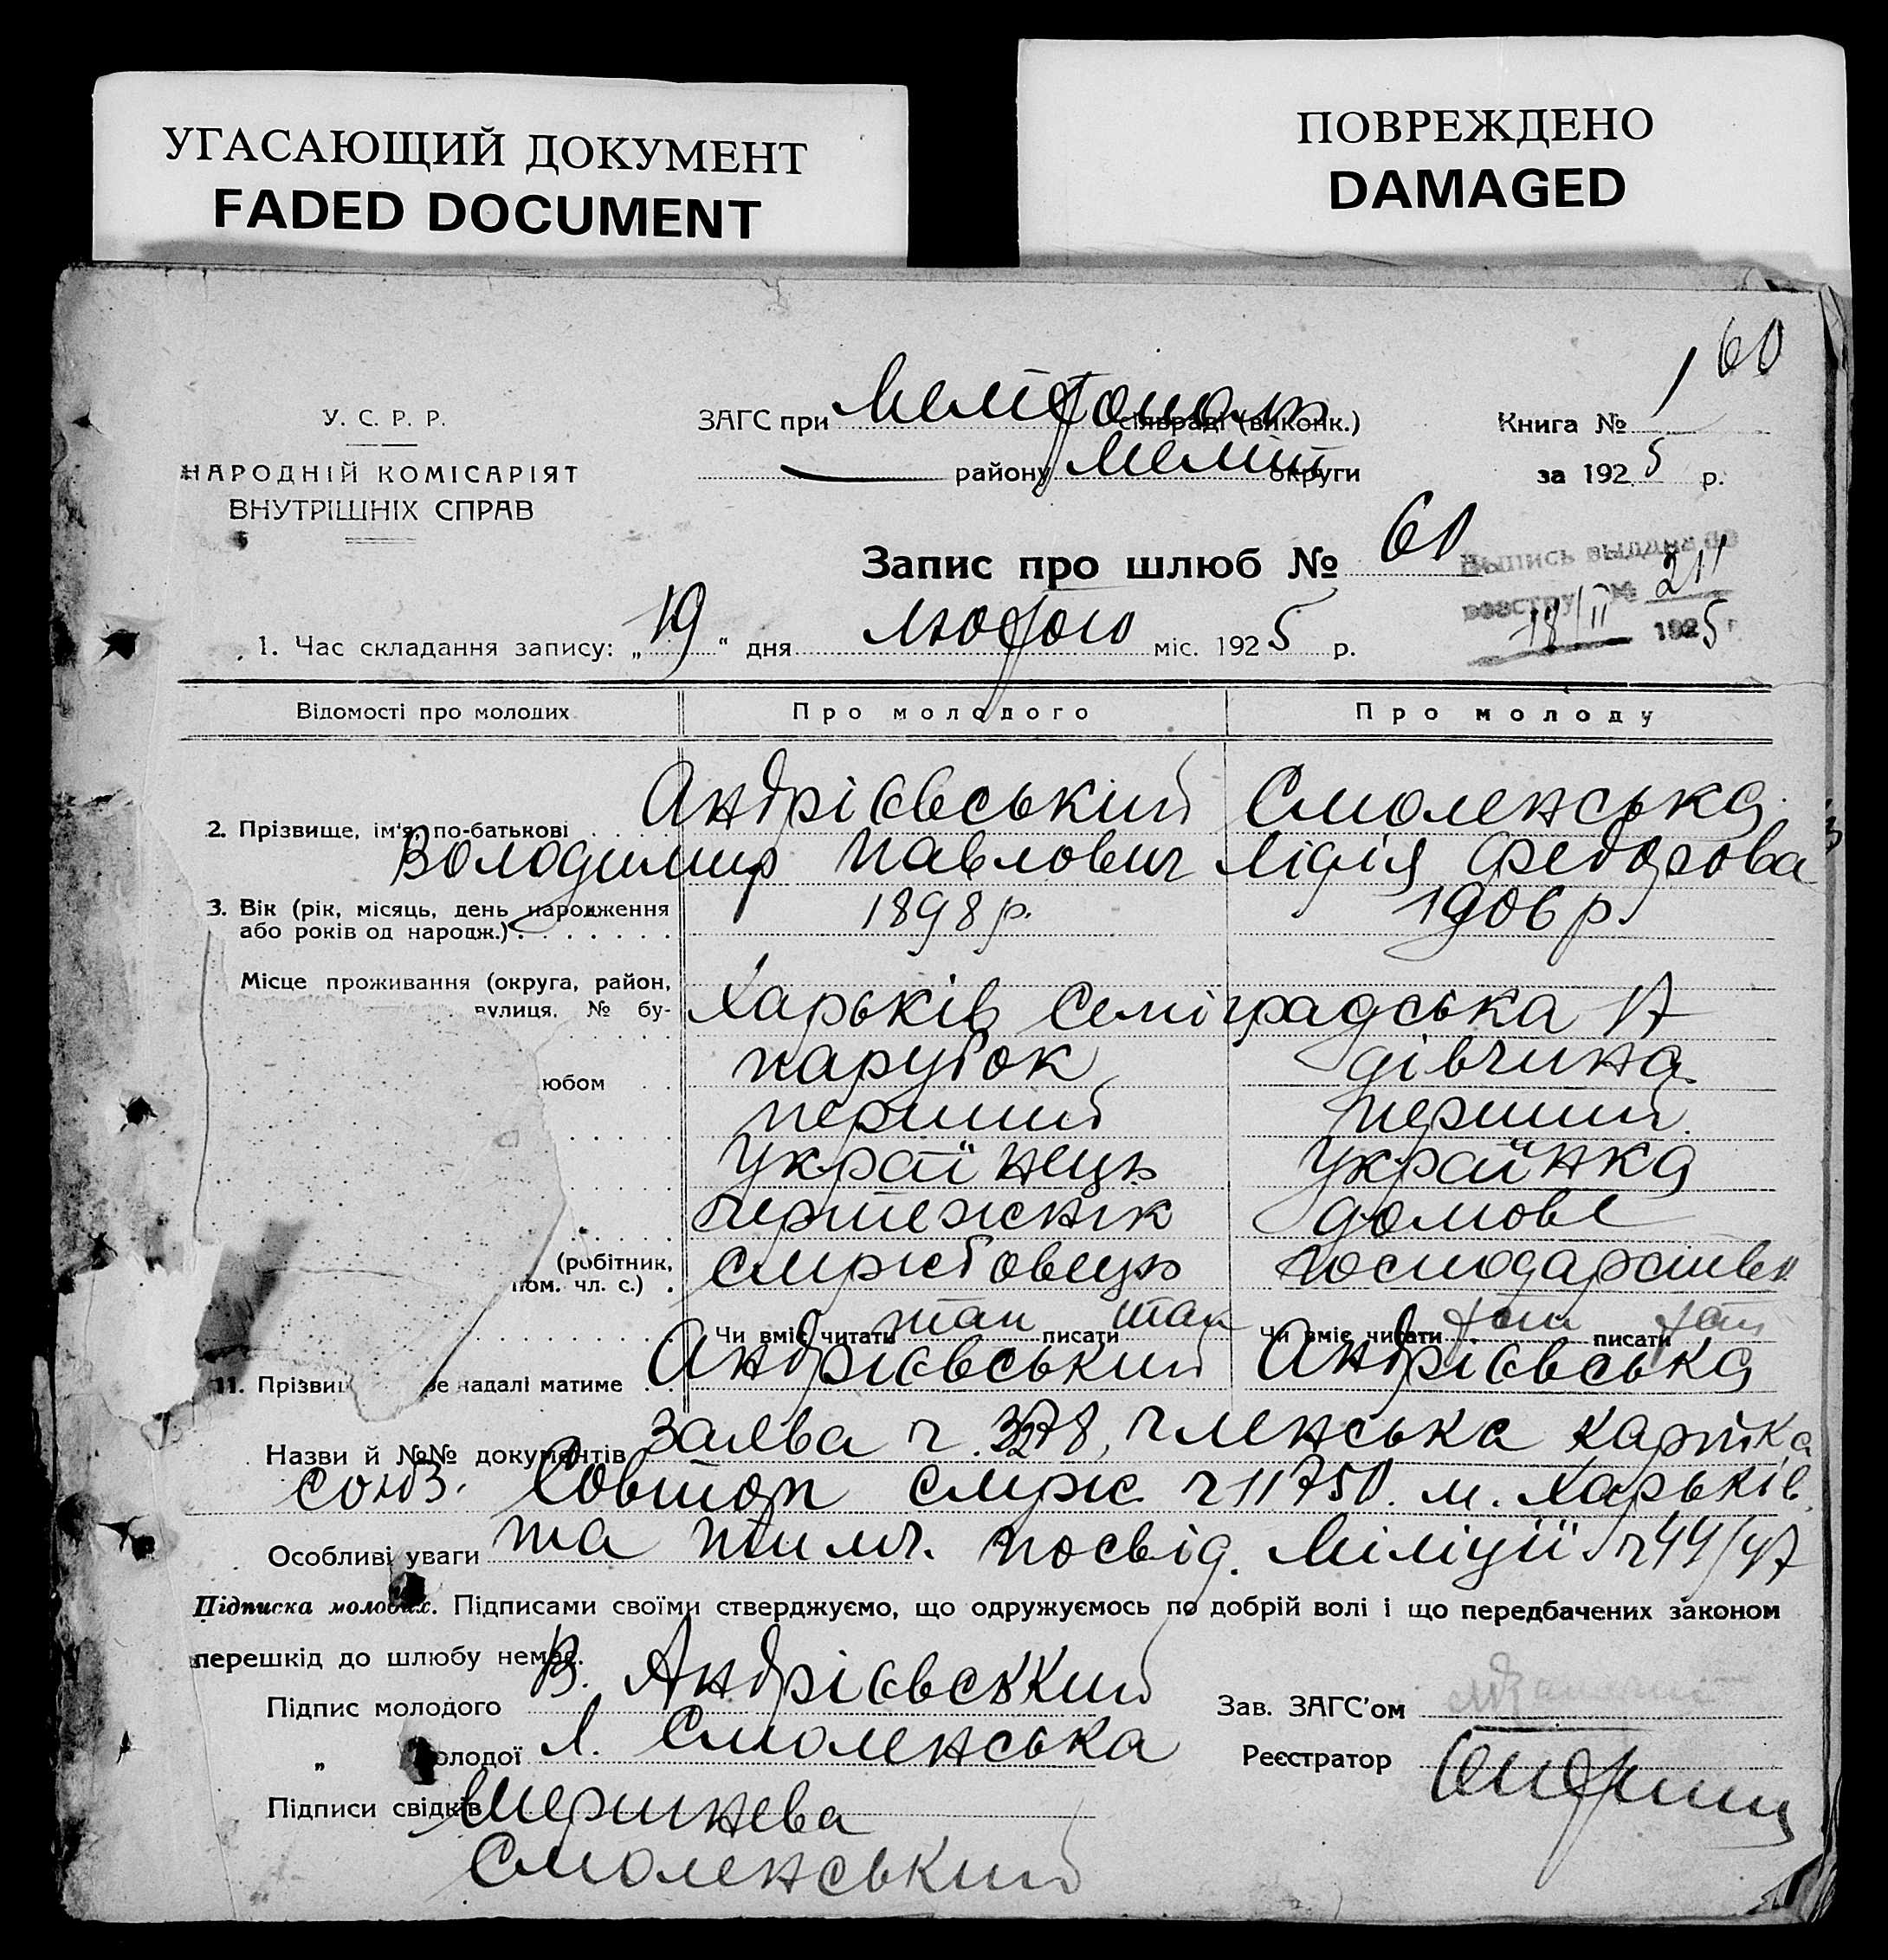 УГАСАЮЩИЙ ДОКУМЕНТ
FADED DOCUMENT
ПОВРЕЖДЕНО
DAMAGED
60
У. С. Р. Р.
НАРОДНІЙ КОМІСАРІЯТ
ВНУТРІШНІХ СПРАВ
ЗАГС при Мелітополь сільраді (виконк.)
району Меліт округи
Книга № 1
за 1925 р.
Запис про шлюб № 60
Выпись выдана по
реестру № 211
18/II 1925 г
1. Час складання запису: „19“ дня лютого міс. 1925 р.
Відомості про молодих Про молодого Про молоду
Андрієвський Смоленська
2. Прізвище, ім'я, по-батькові
Володимир Павлович Лідія Федорова
3. Вік (рік, місяць, день народження 1898 р. 1906 р.
або років од народж.)
Місце проживання (округа, район,
вулиця, № бу- Харьків Семіградська 17
парубок дівчина
юбом
перший перший
Українець Українка
чертежнік домове
(робітник, службовець господарство
пом. чл. с.)
Чи вміє читати так писати так Чи вміє читати так писати так
11. Прізвищ ре надалі матиме Андрієвський Андрієвська
Назви й №№ документів Заява ч. 3278, членська картка
союз. Совторг служ. ч 11750. м. Харьків
Особливі уваги та тимч. посвід. Міліції ч 44/47
Підписка молодих. Підписами своїми стверджуємо, що одружуємось по добрій волі і що передбачених законом
перешкід до шлюбу немає.
Підпис молодого В. Андрієвський
Зав. ЗАГС'ом
„ молодої Л. Смоленська
Реєстратор
Підписи свідків
Смоленський